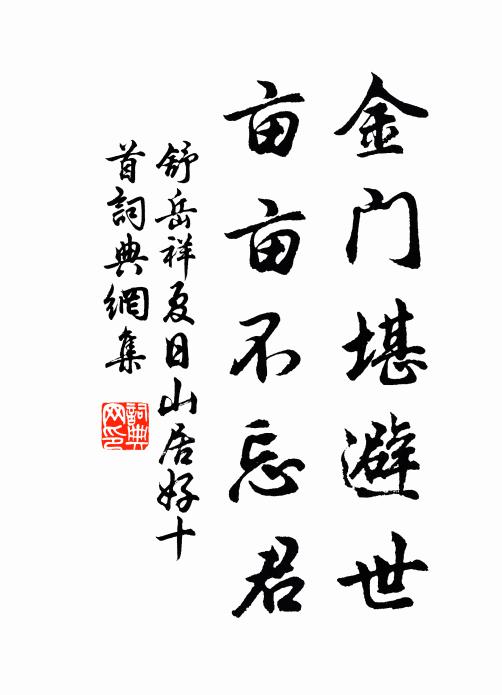 金门堪避世
亩亩不忘君
舒岳祥夏日山居好十
首词典網集
詞典网印